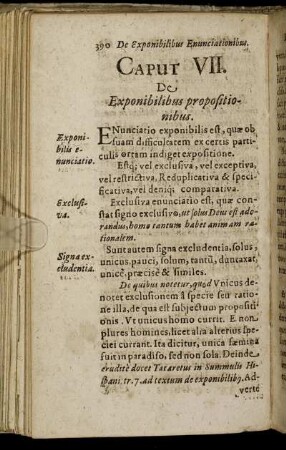 390 De Exponibilibus Enunciationibus.
CAPUT VII.
De
Exponibilibus propositio-
nibus.
Exponi-
bilis e-
nunciatio.
ENunciatio exponibilis est, quæ ob
suam difficultatem ex certis parti-
culis ortam indiget expositione.
Estq; vel exclusiva, vel exceptiva,
vel restrictiva, Reduplicativa & speci-
ficativa, vel deniq; comparativa.
Exclusi-
va.
Exclusiva enunciatio est, quæ con-
stat signo exclusivo, ut solus Deus est ado-
randus, homo tantum habet animam ra-
tionalem.
Signa ex-
cludentia.
Sunt autem signa excludentia, solus,
unicus, pauci, solum, tantũ, duntaxat,
unicè, præcisè & similes.
De quibus notetur, quod Unicus de-
notet exclusionem à specie seu ratio-
ne illa, de qua est subjectum propositi-
onis. Vt unicus homo currit. E. non
plures homines, licet alia alterius spe-
ciei currant. Ita dicitur, unica fæmina
fuit in paradiso, sed non sola. Deinde
eruditè docet Tataretus in Summulis Hi-
spani tr. 7. ad textum de exponibilibꝰ. Ad-
verte